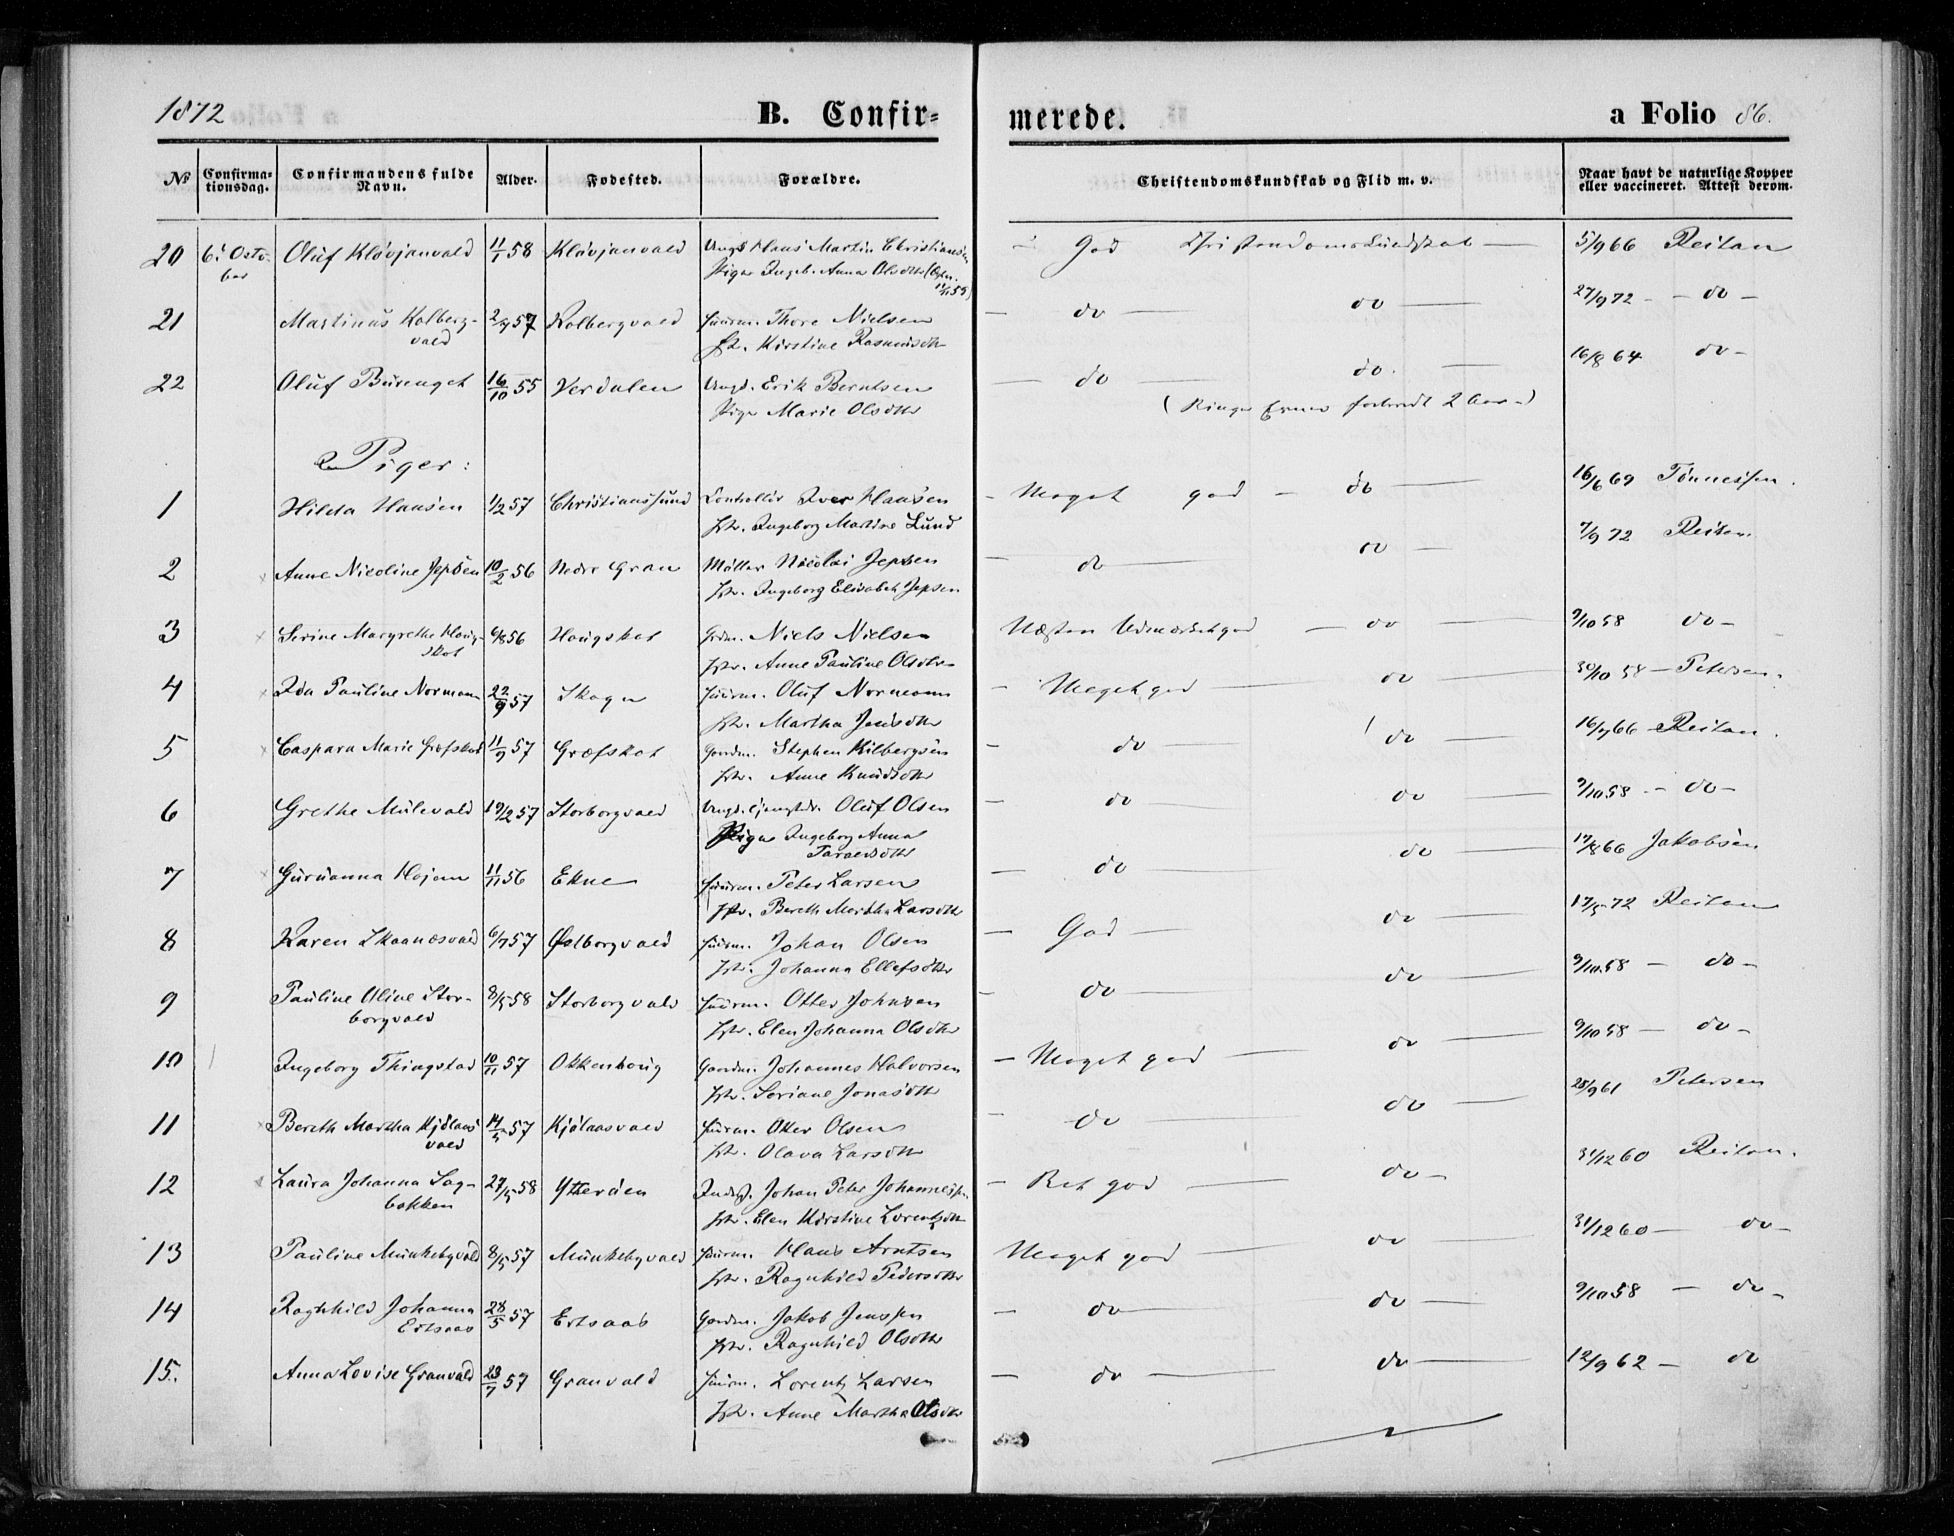 1872 B. Confir=merede. a Folio 86.
No Confirmationsdag. Confirmandens fulde Navn. Alder. Fødested. Forældre. Christendomskundskab og Flid m. v. Naar havt de naturlige Kopper eller vaccineret. Attest derom.
20 6. Octo- Oluf Kløvjanvald 11/1 58 Kløvjanvald Ungk. Hans Martin Christiansen — God Christendomskundskab — 5/9 66 Reitan
ber Pige Ingeb. Anna Olsdtr
21 Martinus Kolberg- 57 Kolbergvald Huusm. Thore Nielsen — do — do — 27/9 72 — do —
vald Hr. Kirstine Rasmusdtr
22 Oluf Burenget 16/10 55 Verdalen Ungk. Erik Berntsen — do — do. — 16/8 64 do —
Pige Marie Olsdtr (Ringe Evner
Piger:
1 Hilda Hansen 1/2 57 Christianssund Controllør Iver Hansen — Meget god — do — 16/6 69 Tønnessen.
Hr. Ingeborg Martine Lund
2 Anne Nicoline Jepsen 10/2 56 Nedre Gran Møller Nicolai Jepsen — do — do — 7/9 72 Reitan
Hr. Ingeborg Elisabeth Jepsen
3 Serine Margrethe Haug- 6/8 56 Haugskot Grdm. Niels Nielsen Næsten Udmærket god — do — 9/10 58 do —
skot Hr. Anne Pauline Olsdtr
4 Ida Pauline Normann 22/9 57 Skogn Huusm. Oluf Normann — Meget god — do — 30/10 58 — Petersen.
Hr. Martha Jensdtr
5 Caspara Marie Græfskot 11/9 57 Græfskot Gaardm. Stephen Kilbergsen — do — do — 16/7 66 Reitan.
Hr. Anne Knudsdtr
6 Grethe Mulevald 19/2 57 Storborgvald Ungk. Oluf Olsen — do — do 9/10 58 — do —
Pige Ingeborg Anna
Taraldsdtr
7 Guruanna Hojem 11/11 56 Ekne Huusm. Peter Larsen — do — do — 17/8 66 Jakobsen
Hr. Bereth Martha Larsdtr
8 Karen Skaanesvald 6/7 57 Østborgvald Huusm. Johan Olsen — God — do — 17/5 72 Reitan
Hr. Johanna Ellefsdtr
9 Pauline Oline Stor- 8/5 58 Storborgvald Huusm. Otter Johnsen — do — do — 9/10 58 — do —
borgvald Hr. Elen Johanna Olsdtr
10 Ingeborg Thingstad 10/11 57 Okkenhoug Gaardm. Johannes Halvorsen — Meget god — do — 9/10 58 — do —
Hr. Soriane Jonasdtr
11 Bereth Martha Kjølaas 14/5 57 Kjølaasvald Huusm. Otter Olsen — do — do — 25/9 61 Petersen
vald Hr. Olava Larsdtr
12 Laura Johanna Sag- 27/5 58 Ytterøen Inds. Johan Peter Johannessen — Ret god — do — 31/12 60 Reitan.
bakken Hr. Elen Kirstine Lorentzdtr
13 Pauline Munkebyvald 8/5 57 Munkebyvald Huusm. Hans Arntsen Meget god — do — 31/12 60 — do —
Hr. Ragnhild Pedersdtr
14 Ragnhild Johanna 28/5 57 Ertsaas Gaardm. Jakob Jenssen — do — do — 9/10 58 — do —
Ertsaas Hr. Ragnhild Olsdtr
15. Anna Lovise Granvald 23/7 57 Granvald Huusm. Lorentz Larsen — do — do — 12/9 62 — do
Hr. Anne Martha Olsdtr